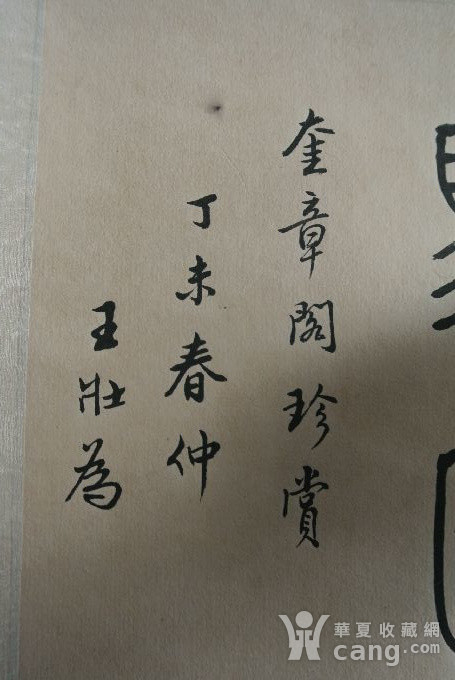 奎章閣珍賞
丁未春仲
王壯為
華夏收藏網
cang.com